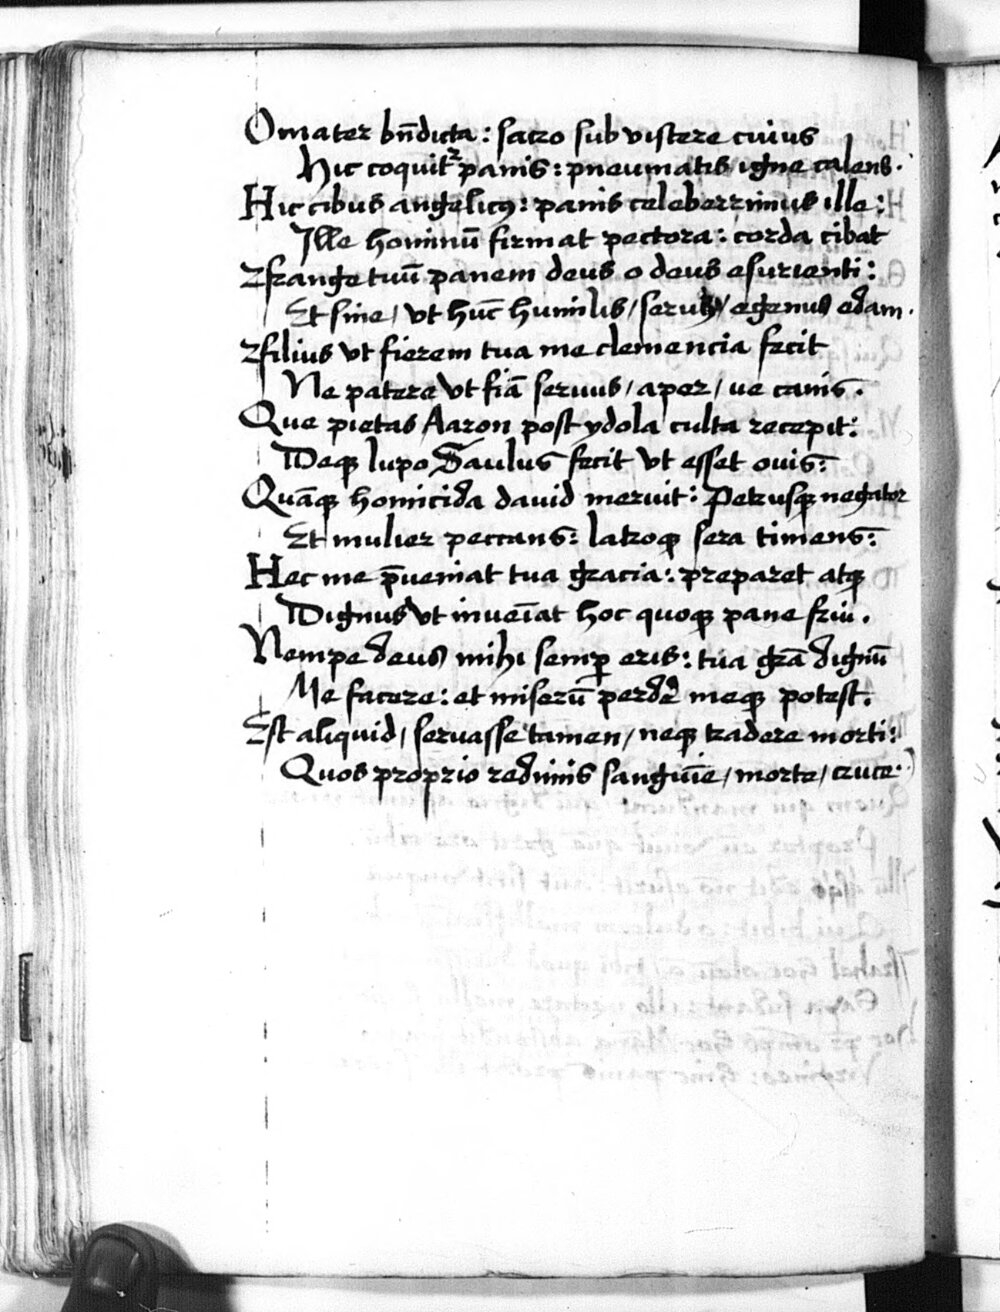 O mater bn̄dicta : sacro sub viscere cuius
Hic coquitᷣ panis : pneumatis igne calens .
Hic cibus angelicꝰ : panis celeberrimus ille :
Ille hominū firmat pectora : corda cibat
frange tuū panem deus o deus esurienti :
Et sine / vt hūc humilis / seruus / egenus edam .
filius vt fierem tua me clemencia fecit
Ne patere vt fiā seruus / aper / ve canis .
Que pietas Aaron post ydola culta recepit :
Deqꝫ lupo Saulus fecit vt esset ouis :
Quāqꝫ homicida dauid meruit : Petrusqꝫ negator
Et mulier peccans : latroqꝫ sera timens :
Hec me p̄ueniat tua gracia : preparet atqꝫ
Dignus vt inueīat hoc quoqꝫ pane frui .
Nempe deus mihi semꝑ eris : tua grā dignū
Me facere : et miserū perde meqꝫ potest .
Est aliquid / seruasse tamen / neqꝫ tradere morti :
Quos proprio redimis sanguīe / morte / cruce .